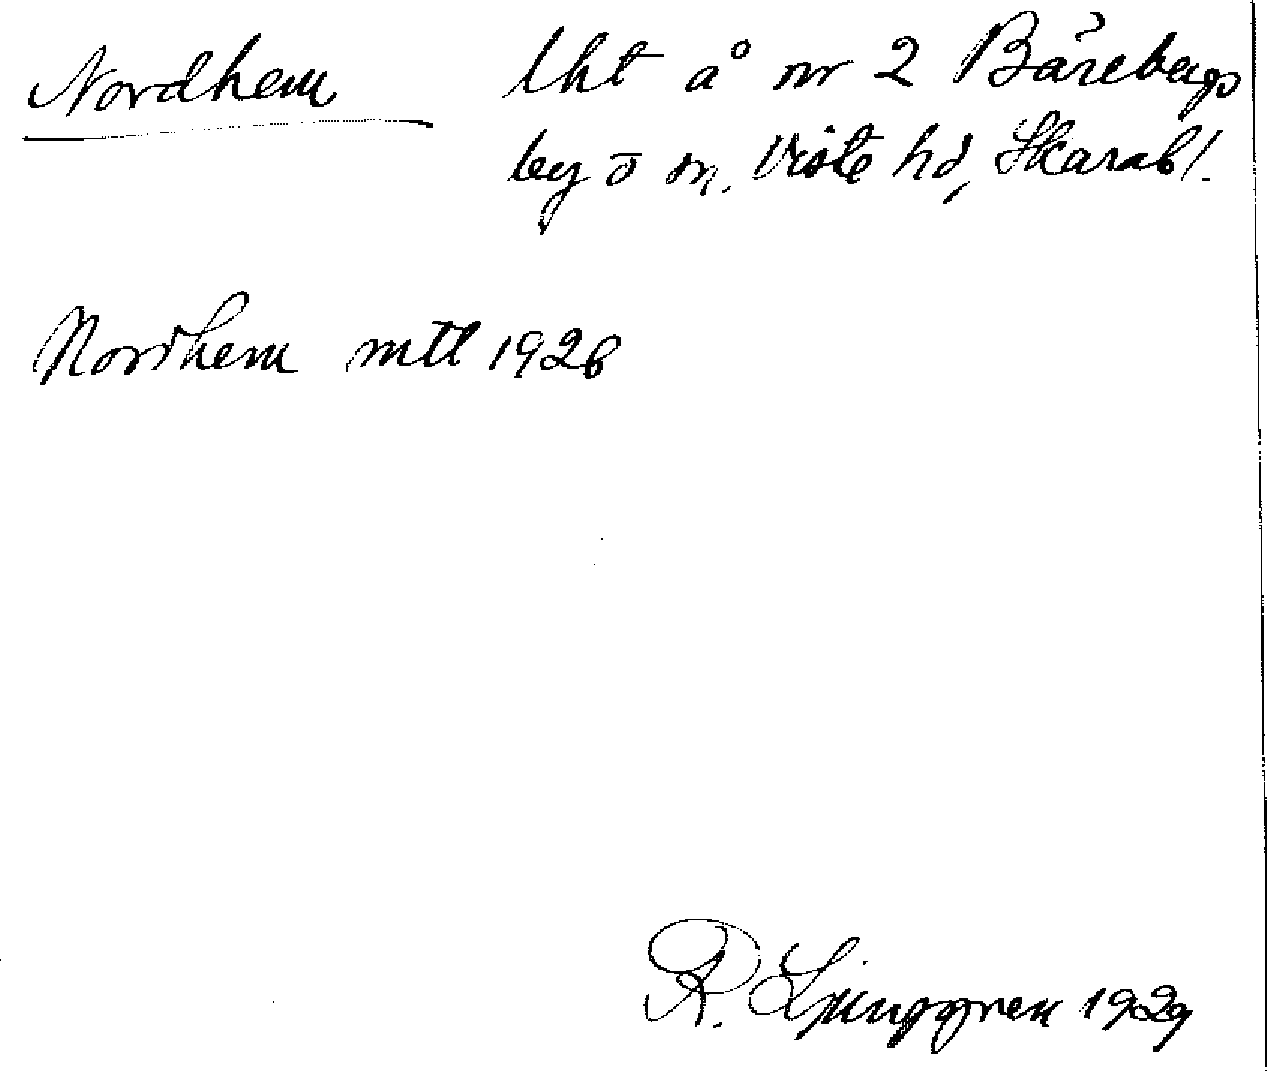 Nordhem lht å nr 2 Bärebergs
by o sn. Viste hd, Skarabl.
Nordhem mtl 1926
R. Ljunggren 1929